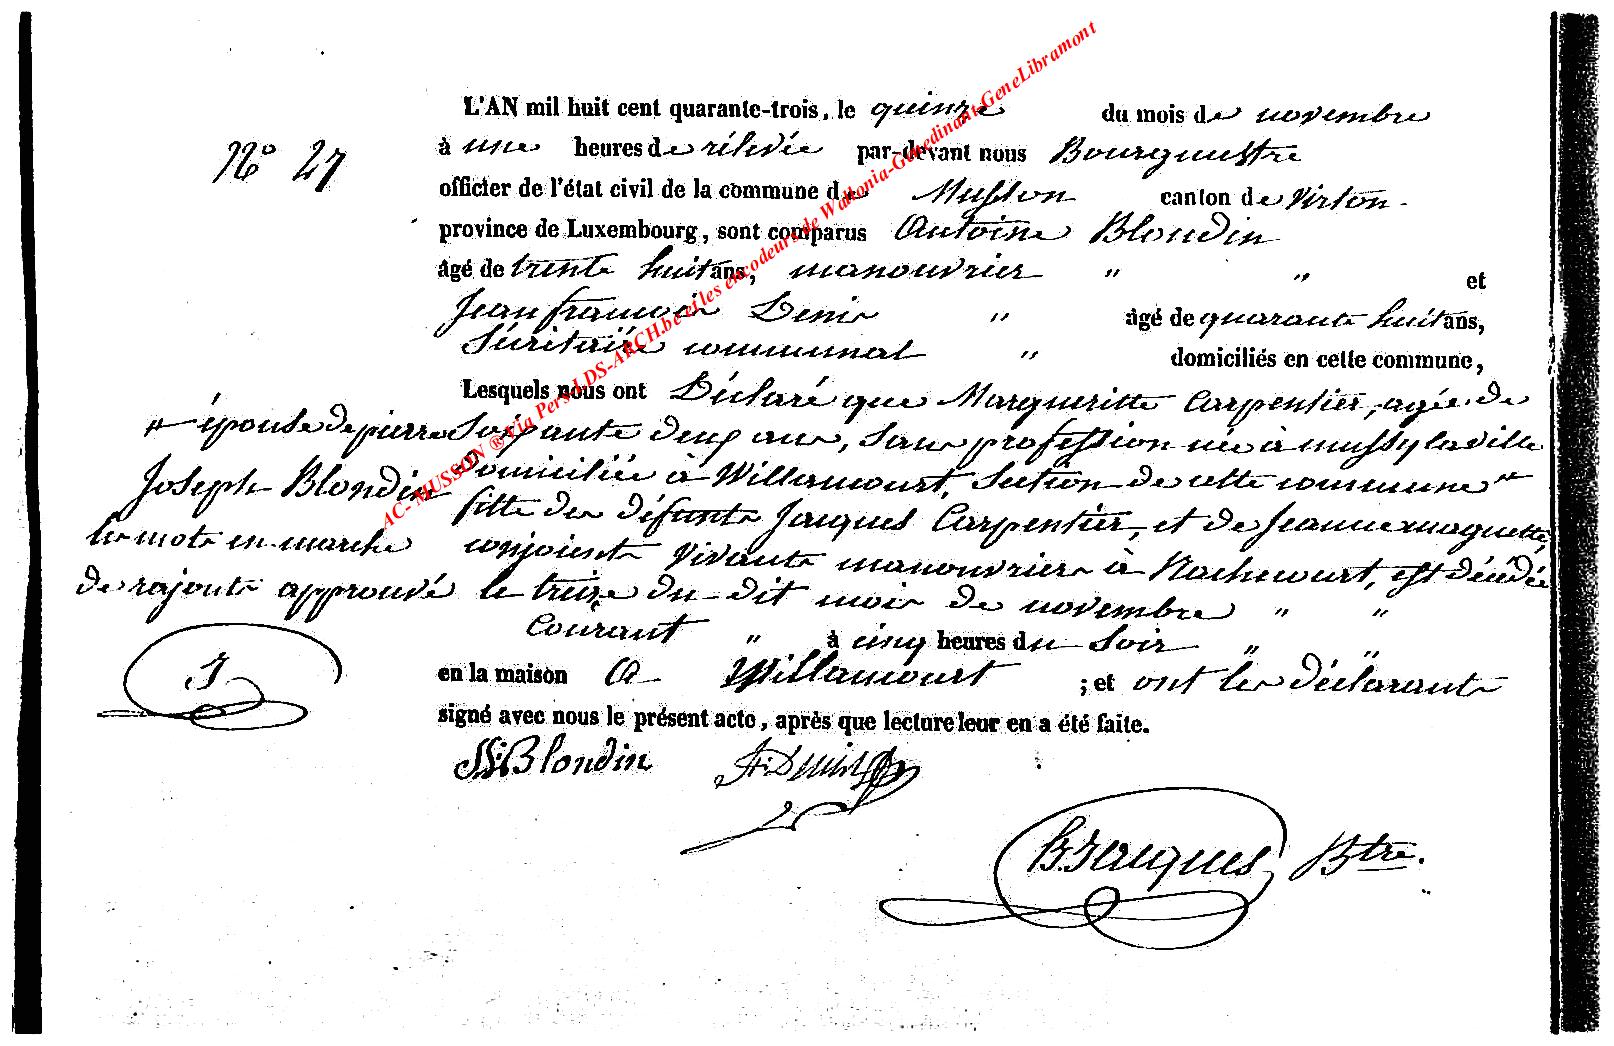 N° 27
L'AN mil huit cent quarante-trois, le quinze du mois de novembre
à une heures de rélevée par-devant nous Bourgmestre
officier de l'état civil de la commune de Musson canton de Virton.
province de Luxembourg, sont comparus Antoine Blondin
âgé de trente huit ans, manouvrier " " et
Jean françois Denis " âgé de quarante huit ans,
Sécrétaire communal " domiciliés en cette commune,
Lesquels nous ont Déclaré que Margueritte Carpentier, agée de
soixante deux ans, sans profession née à mussy la ville
domiciliée à Willancourt, Section de cette commune "
fille des défunts Jacques Carpentier, et de Jeanne maquette,
conjoints vivants manouvriers à Rachecourt, est décédée
le treize du dit mois de novembre " "
Courant " à cinq heures du Soir " "
en la maison à Willancourt ; et ont les déclarants
signé avec nous le présent acte, après que lecture leur en a été faite.
" épouse de pierre
Joseph Blondin
les mots en marche
de rajouts approuvé
J
Blondin
B Jacques Btre.
AC- MUSSON ® Via Pers-LDS-ARCH.be et les encodeurs de Wallonia-Genedinant-GeneLibramont